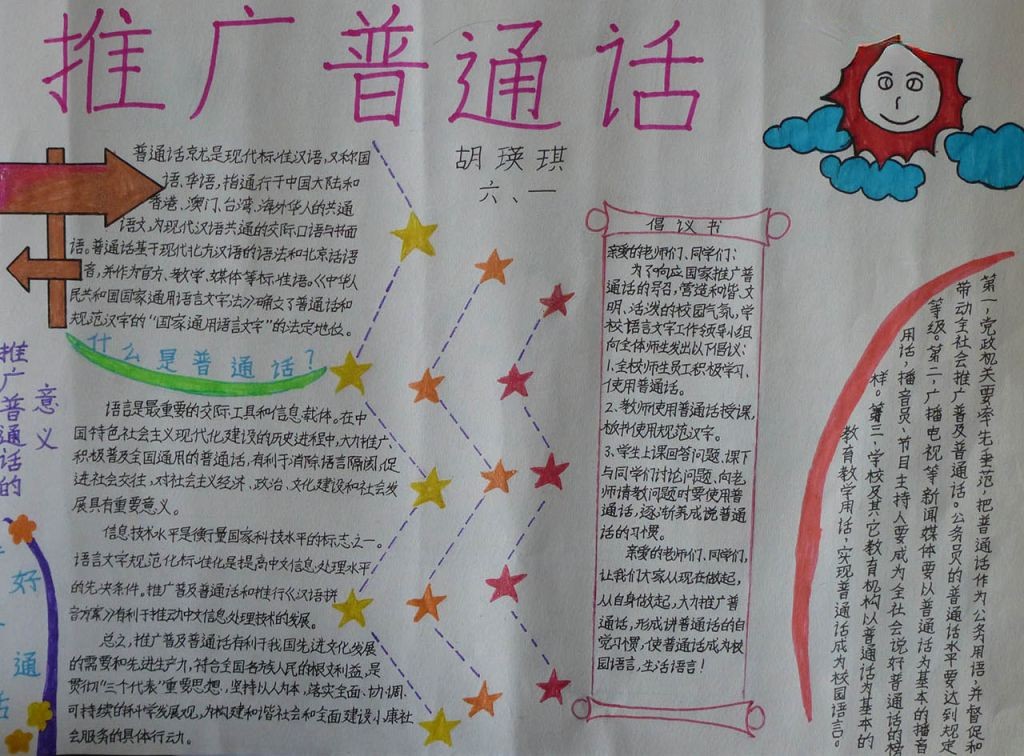 推广普通话
胡瑛琪
六、一
普通话就是现代标准汉语,又称国
语、华语,指通行于中国大陆和
香港、澳门、台湾、海外华人的共通
语文,为现代汉语共通的交际口语与书面
语。普通话基于现代北方汉语的语法和北京话语
音,并作为官方、教学、媒体等标准语。《中华人
民共和国国家通用语言文字法》确立了普通话和
规范汉字的“国家通用语言文字”的法定地位。
什么是普通话?
推广普通话的
意义
语言是最重要的交际工具和信息载体。在中
国特色社会主义现代化建设的历史进程中,大力推广、
积极普及全国通用的普通话,有利于消除语言隔阂,促
进社会交往,对社会主义经济、政治、文化建设和社会发
展具有重要意义。
信息技术水平是衡量国家科技水平的标志之一。
语言文字规范化标准化是提高中文信息处理水平
的先决条件。推广普及普通话和推行《汉语拼
音方案》有利于推动中文信息处理技术的发展。
总之,推广普及普通话有利于我国先进文化发展
的需要和先进生产力,符合全国各族人民的根本利益,是
贯彻“三个代表”重要思想,坚持以人为本,落实全面、协调、
可持续的科学发展观,为构建和谐社会和全面建设小康社
会服务的具体行动。
好
通
话
倡议书
亲爱的老师们、同学们:
为了响应国家推广普
通话的号召,营造和谐、文
明、活泼的校园气氛,学
校语言文字工作领导小组
向全体师生发出以下倡议:
1、全校师生员工积极学习、
使用普通话。
2、教师使用普通话授课,
板书使用规范汉字。
3、学生上课回答问题,课下
与同学们讨论问题,向老
师请教问题时要使用普
通话,逐渐养成说普通话
的习惯。
亲爱的老师们、同学们,
让我们大家从现在做起,
从自身做起,大力推广普
通话,形成讲普通话的自
觉习惯,使普通话成为校
园语言,生活语言!
第一,党政机关要率先垂范,把普通话作为公务用语,并督促和
带动全社会推广普及普通话。公务员的普通话水平要达到规定
等级。第二,广播电视等新闻媒体要以普通话为基本的播音
用话,播音员、节目主持人要成为全社会说好普通话的榜
样。第三,学校及其它教育机构以普通话为基本的
教育教学用话,实现普通话成为校园语言。